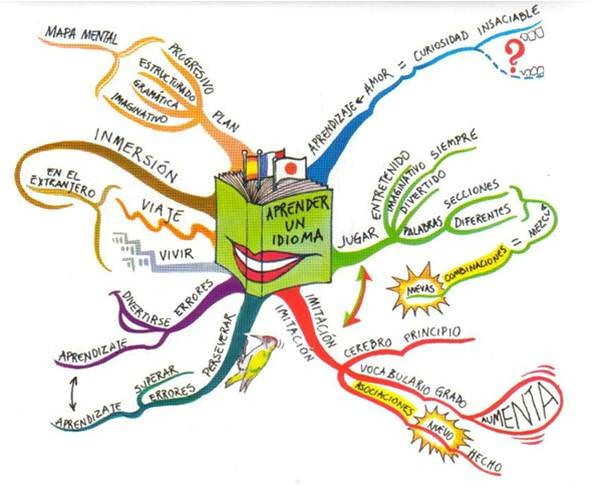 APRENDER
UN
IDIOMA
APRENDIZAJE AMOR = CURIOSIDAD INSACIABLE
?
JUGAR
ENTRETENIDO
IMAGINATIVO SIEMPRE
DIVERTIDO
PALABRAS SECCIONES
DIFERENTES
MEZCLA
=
COMBINACIONES
NUEVAS
IMITACIÓN
IMITACIÓN
CEREBRO PRINCIPIO
VOCABULARIO GRADO
AUMENTA
ASOCIACIONES
NUEVO
HECHO
PERSEVERAR
SUPERAR
ERRORES
APRENDIZAJE
ERRORES
DIVERTIRSE
APRENDIZAJE
VIVIR
VIAJE
INMERSIÓN
EN EL
EXTRANJERO
PLAN
PROGRESIVO
ESTRUCTURADO
GRAMÁTICA
IMAGINATIVO
MAPA MENTAL